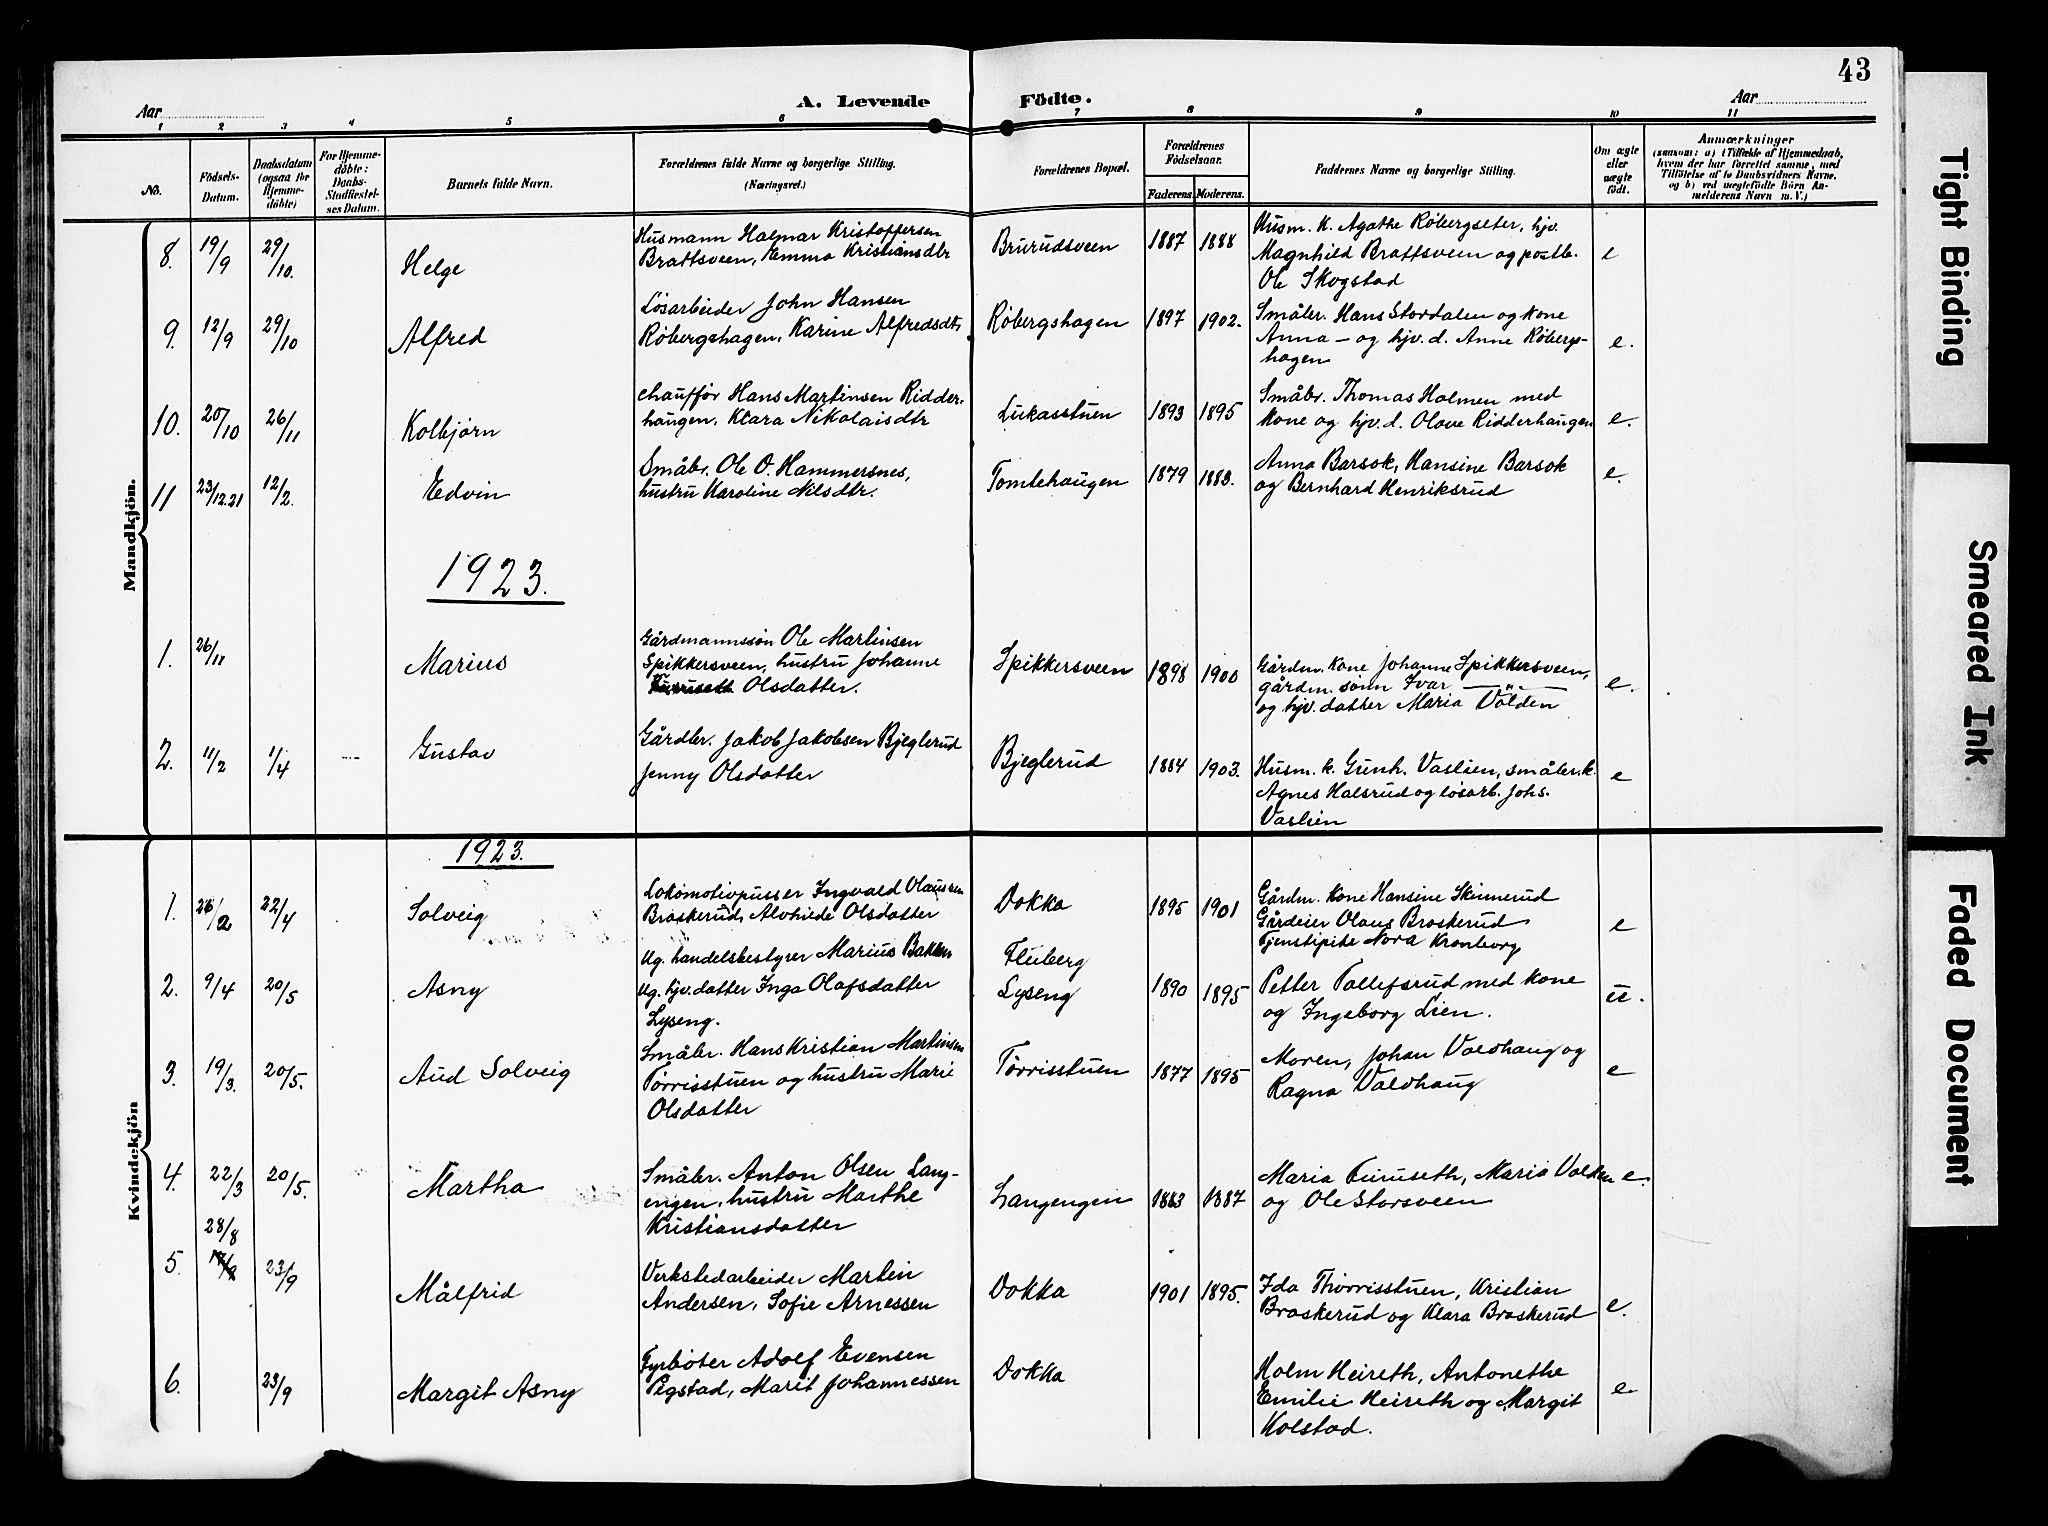 43
Aar
A. Levende Födte.
Aar
1 2 3 4 5 6 7 8 9 10 11
No.
Födsels-Datum.
Daabsdatum (ogsaa for Hjemme-döbte)
For Hjemme-döbte: Daabs-Stadfæstel-ses Datum.
Barnets fulde Navn.
Forældrenes fulde Navne og borgerlige Stilling.
(Næringsvei.)
Forældrenes Bopæl.
Forældrenes Födselsaar.
Faderens. Moderens.
Faddernes Navne og borgerlige Stilling.
Om ægte eller uægte födt.
Anmærkninger
(saasom: a) i Tilfælde af Hjemmedaab, hvem der har forrettet samme, med Tilföielse af to Daabsvidners Navne, og b) ved uægtefödte Börn An-melderens Navn m. V.)
Mandkjön.
8. 19/9 29/10. Helge
Husmann Halmar Kristoffersen
Brattsveen, Emma Kristiansdtr
Brurudsveen 1887 1888
Husm. K. Agathe Røbergseter, hjv.
Magnhild Brattsveen og postb.
Ole Skogstad
e
9. 12/9 29/10 Alfred
Løsarbeider John Hansen
Røbergshagen, Karine Alfredsdt,
Røbergshagen 1897 1902.
Småbr. Hans Stordalen og kone
Anna – og hjv. d. Anne Røbergs-
hagen
e.
10. 20/10 26/11 Kolbjørn
Chauffør Hans Martinsen Ridder-
haugen, Klara Nikolaisdtr
Lukasstuen 1893 1895
Småbr. Thomas Holmen med
kone og hjv. d. Olave Ridderhaugen
e.
11 23/12.21 12/2. Edvin
Småbr. Ole O. Hammersnes,
hustru Karoline Nilsdtr.
Tomlehaugen 1879 1883.
Anna Barsok, Hansine Barsok
og Bernhard Henriksrud
e.
1923.
1. 26/11 Marius
Gårdmannssøn Ole Martinsen
Spikkersveen, hustru Johanne
Olsdatter.
Spikkersveen 1898 1900
Gårdm. kone Johanne Spikkersveen,
gårdm. sønn Ivar —"—
og hjv. datter Maria Volden
e.
2. 11/2 1/4 --- Gustav
Gårdbr. Jakob Jakobsen Bjeglerud
Jenny Olsdatter
Bjeglerud 1884 1903.
Husm. k. Gunh. Vaslien, småbr.k.
Agnes Halsrud og løsarb. Johs.
Vaslien
e
Kvindekjön
1923.
1. 26/2 22/4 Solveig
Lokomotivpusser Ingvald Olaussen
Braskerud, Alvhilde Olsdatter
Dokka 1895 1901
Gårdm. kone Hansine Skinnerud
Gårdeier Olaus Braskerud
Tjenstipike Nora Kronborg
e
2. 9/4 20/5 Asny
Ug. handelsbestyrer Marius Bakken
Ug. hjv. datter Inga Olafsdatter
Lyseng.
Fluberg
Lyseng
1890 1895
Petter Tollefsrud med kone
og Ingeborg Lien.
u.
3. 19/3. 20/5. Aud Solveig
Småbr. Hans Kristian Martinsen
Tørrisstuen og hustru Marie
Olsdatter
Tørrisstuen 1877 1895
Moren, Johan Valdhaug og
Ragna Valdhaug
e
4. 22/3 20/5. Martha
Småbr. Anton Olsen Lang-
engen, hustru Marthe
Kristiansdatter
Langengen 1883 1887
Maria Furuseth, Maria Volden
og Ole Storsveen
e.
5. 28/8 23/9 Målfrid
Verkstedarbeider Martin
Andersen, Sofie Arnessen
Dokka 1901 1895.
Ida Thorrisstuen, Kristian
Braskerud og Klara Braskerud
e.
6. 23/9 Margit Asny
Fyrbøter Adolf Evensen
Pigstad, Marit Johannessen
Dokka
Holm Heireth, Antonethe
Emilie Heireth og Margit
Kolstad.
e
Tight Binding
Smeared Ink
Faded Document